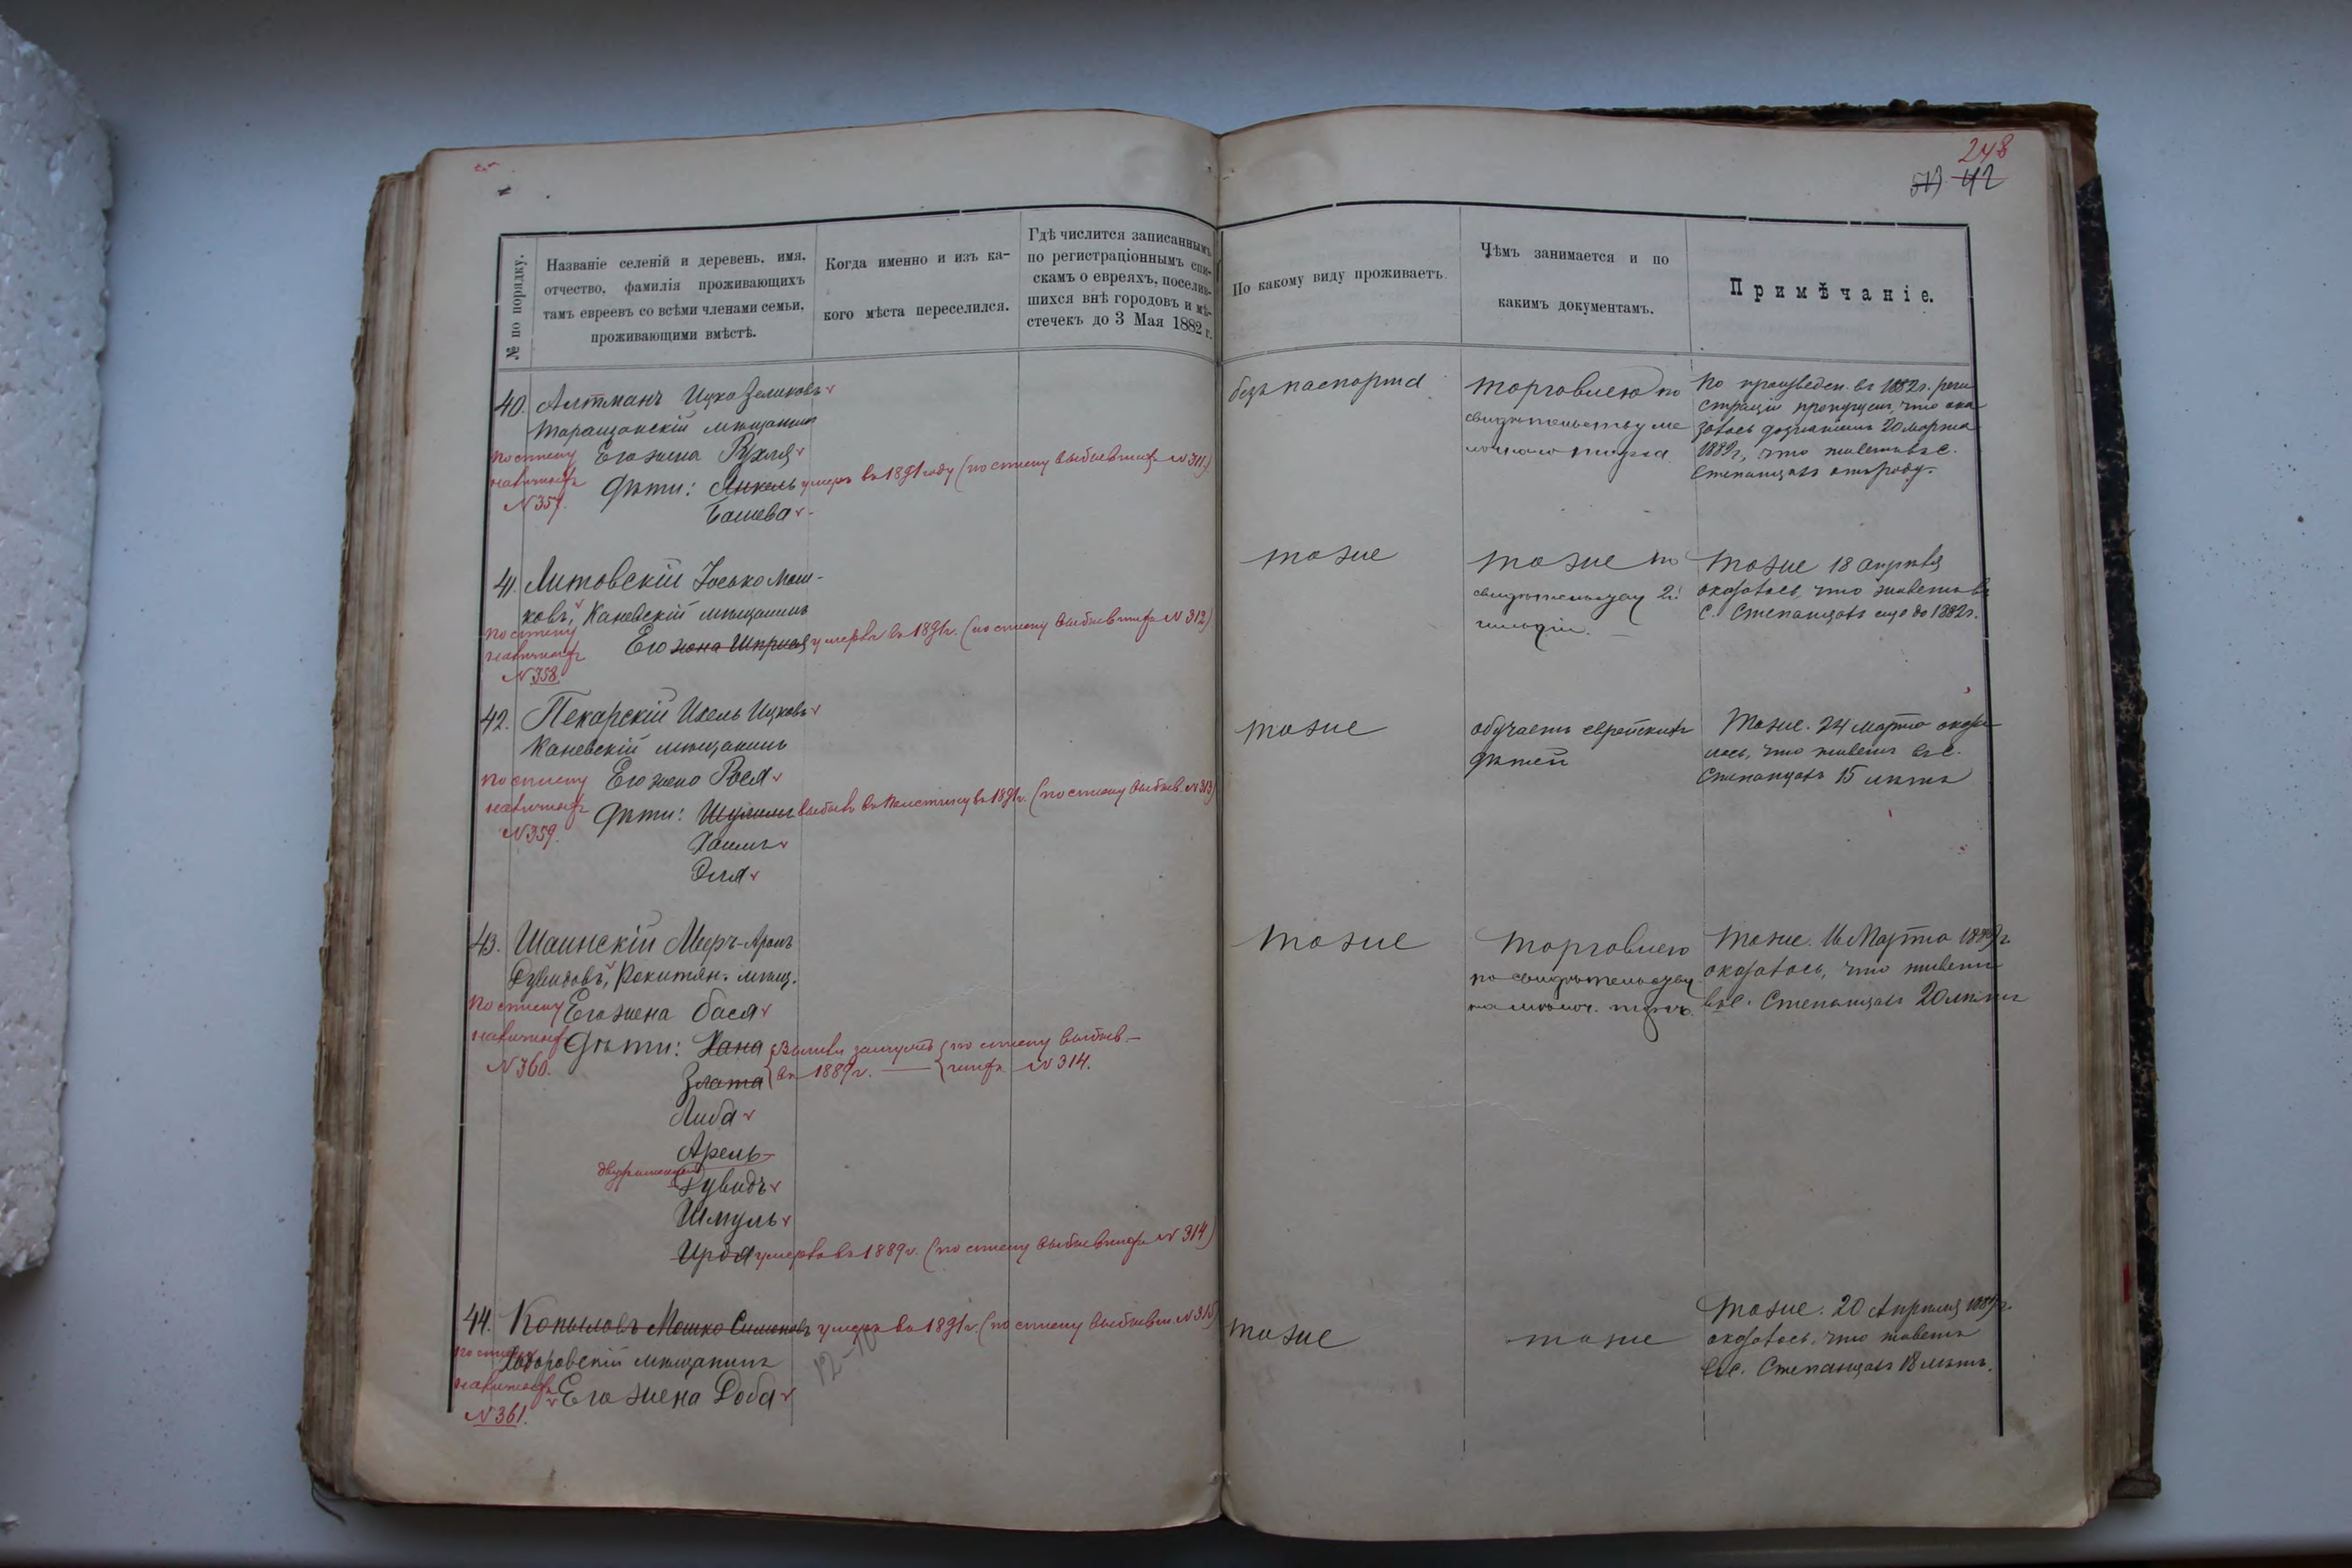 248
513 42
№ по порядку.
Названіе селеній и деревень, имя,
отчество, фамилія проживающихъ
тамъ евреевъ со всѣми членами семьи,
проживающими вмѣстѣ.
Когда именно и изъ ка-
кого мѣста переселился.
Гдѣ числится записаннымъ
по регистраціоннымъ спи-
скамъ о евреяхъ, поселив-
шихся внѣ городовъ и мѣ-
стечекъ до 3 Мая 1882 г.
По какому виду проживаетъ
Чѣмъ занимается и по
какимъ документамъ.
Примѣчаніе.
40. Алтманъ Ицко Зеликовъ
Таращанскій мѣщанинъ
по списку Его жена Рухля
наличныхъ Дѣти: Янкель умеръ въ 1891 году (по списку выбывшихъ № 311)
№ 357. Башева
безъ паспорта
торговлею по
свидѣтельству ме
лочнаго торга
По произведен. въ 1882 г. реги
страціи пропущен, что ока
залось дознаніемъ 20 марта
1889 г., что живетъ въ с.
Степанцахъ
41. Литовскій Іосько Мош-
ковъ, Каневскій мѣщанинъ
по списку
наличныхъ Его жена Шпринца умерла въ 1891 г. (по списку выбывшихъ № 312)
№ 358.
тоже
тоже по
свидѣтельству 2й
гильдіи.
Тоже 18 апрѣля
оказалось, что живетъ въ
с. Степанцахъ еще до 1882 г.
42. Пекарскій Ихель Ицковъ
Каневскій мѣщанинъ
по списку Его жена Рося
наличныхъ Дѣти: Шулимъ выбылъ въ Палестину въ 1891 г. (по списку выбыв. № 313)
№ 359.
Хаимъ
Эля
тоже
обучаетъ еврейскихъ
дѣтей
Тоже. 24 марта оказа
лось, что живетъ въ с.
Степанцахъ 15 лѣтъ
43. Шаинскій Мееръ-Аронъ
Дувидовъ, Рокитян. мѣщ.
по списку Его жена Бася
наличныхъ Дѣти: Хана {Вышли замужъ {по списку выбыв-
№ 360. Злата {въ 1889 г. — {шихъ № 314.
Либа
Арель
двуименный
Дувидъ
Шмуль
умерла въ 1889 г. (по списку выбывшихъ № 314)
тоже
торговлею
по свидѣтельству
на мелоч. торгъ
Тоже. 16 Марта 1889 г.
оказалось, что живетъ
въ с. Степанцахъ 20 лѣтъ
44. Копыловъ Мошко Симоновъ умеръ въ 1891 г. (по списку выбывш. № 315)
по списку Ходоровскій мѣщанинъ
наличныхъ Его жена Доба
№ 361.
12-10
тоже
тоже
Тоже. 20 Апрѣля 1889 г.
оказалось, что живетъ
въ с. Степанцахъ 18 лѣтъ.